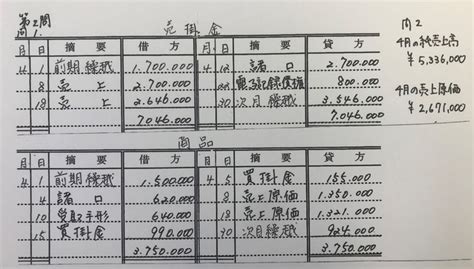 第2問
問1.
売掛金
月 日 摘要 借方 月 日 摘要 貸方
4 1 前期繰越 1.700.000 4 12 諸口 2.700.000
8 売上 2.700.000 電子記録債権 800.000
18 売上 2.646.000 30 次月繰越 3.546.000
7.046.000 7.046.000
商品
月 日 摘要 借方 月 日 摘要 貸方
4 1 前期繰越 1.500.000 4 5 買掛金 155.000
4 諸口 620.000 8 売上原価 1.350.000
10 受取手形 640.000 18 売上原価 1.321.000
15 買掛金 990.000 30 次月繰越 924.000
3.750.000 3.750.000
問2
4月の純売上高
¥5,336,000
4月の売上原価
¥2,671,000